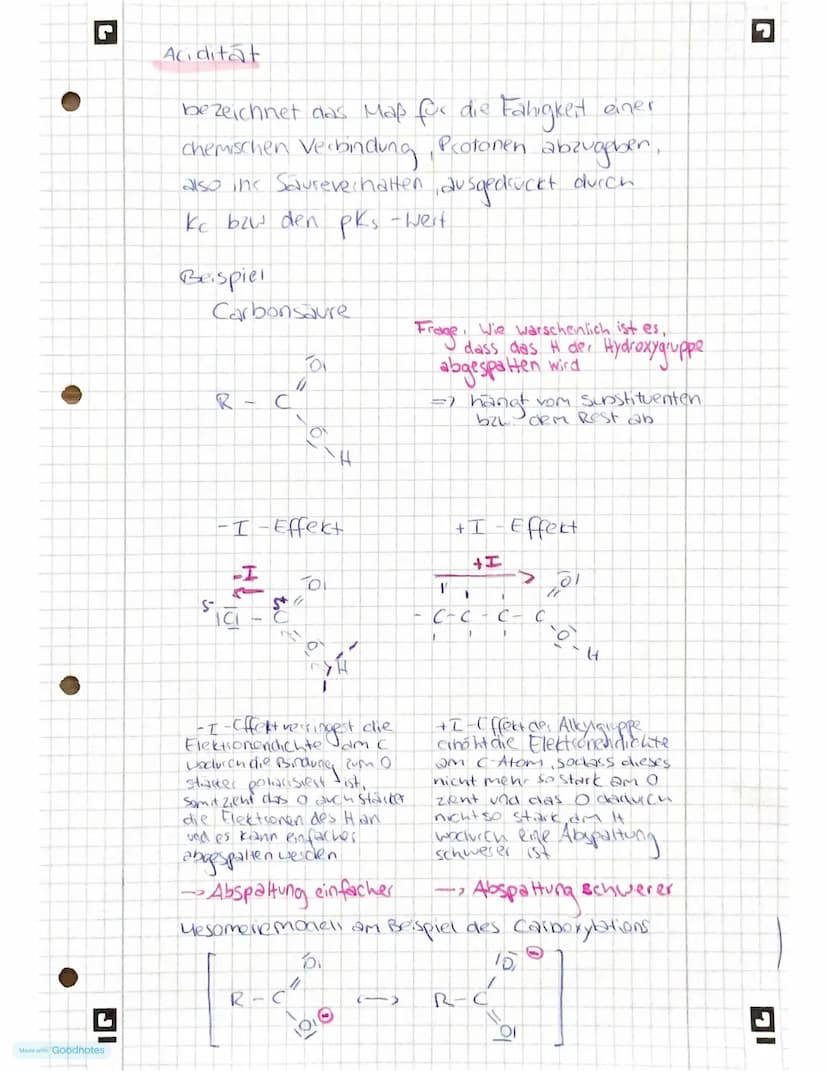 Acidität
bezeichnet das Maß für die Fähigkeit einer
chemischen Verbindung, Protonen abzugeben,
also ihr Säureverhalten, ausgedrückt durch
Kc bzw den pKs-Wert
Beispiel
Carbonsäure
Frage. Wie warschenlich ist es,
dass das H der Hydroxygruppe
abgespalten wird
=> hängt vom Substituenten
bzw dem Rest ab
O
R - C
O
H
-I-Effekt
+I-Effekt
-I
O
δ- Cl - δ+ C
O
H
+I
O
- C - C - C - C
O
H
-I-Effekt verringert die
Elektronendichte am C
wodurch die Bindung zum O
stärker polarisiert ist,
somit zieht das O auch stärker
die Elektronen des H an
und es kann einfacher
abgespalten werden
-> Abspaltung einfacher
+I-Effekt der Alkylgruppe
erhöht die Elektronendichte
am C-Atom, sodass dieses
nicht mehr so stark am O
zieht und das O dadurch
nicht so stark am H
wodurch eine Abspaltung
schwerer ist
-> Abspaltung schwerer
Mesomeriemodell am Beispiel des Carboxylations
O
R - C
O ⊖
<->
O ⊖
R - C
O
Made with Goodnotes